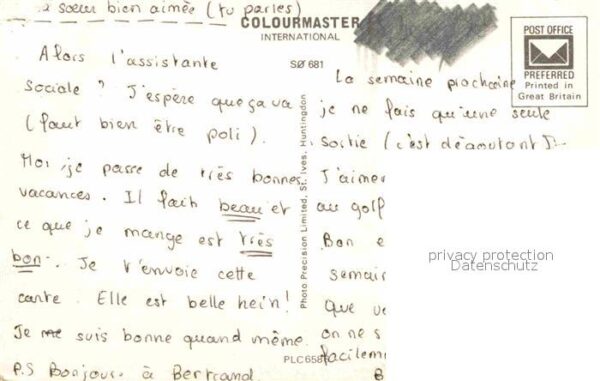 sœur bien aimée (tu parles)
COLOURMASTER
INTERNATIONAL
SØ 681
POST OFFICE
PREFERRED
Printed in
Great Britain
Alors l'assistante
sociale ? J'espère que ça va
(faut bien être poli).
Moi, je passe de très bonnes
vacances. Il fait beau et
ce que je mange est très
bon. Je t'envoie cette
carte. Elle est belle hein!
Je suis bonne quand même.
P.S Bonjour à Bertrand
Photo Precision Limited, St. Ives, Huntingdon
PLC658
La semaine prochaine
je ne fais qu'une seule
sortie (c'est
J'aimer
au golf
Bon e
semain
Que ve
on ne s
facilem
B
privacy protection
Datenschutz